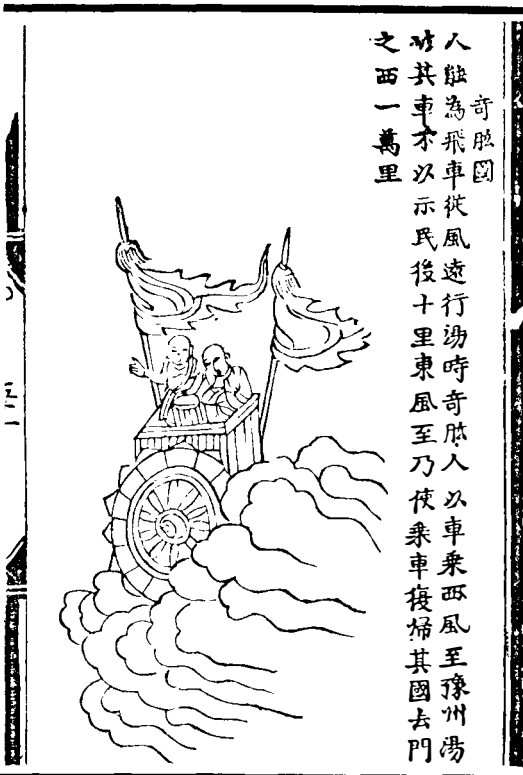 奇肱國
人能為飛車從風遠行湯時奇肱人以車乘西風至豫州湯
破其車不以示民後十里東風至乃使乘車復歸其國去門
之西一萬里